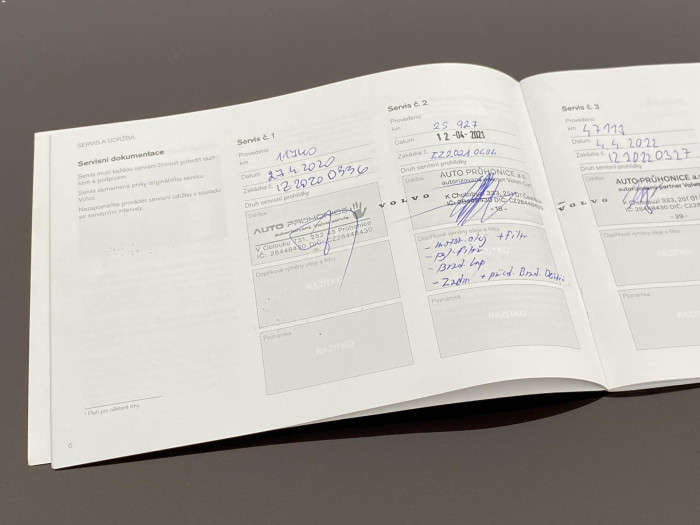 SERVIS A ÚDRŽBA
Servisní dokumentace
Servis musí každou servisní činnost potvrdit razít-
kem a podpisem.
Servis zaznamená prvky originálního servisu
Volvo.
Nezapomeňte provádět servisní údržbu v souladu
se servisními intervaly.¹
¹ Platí pro některé trhy.
6
Servis č. 1
Provedeno
km 11740
Datum 27.4.2020
Zakázka č. IZ2020 0336
Druh servisní prohlídky
Údržba
AUTO PRŮHONICE
autorizovaný Volvo servis
V Oblouku 731, 252 43 Průhonice
IČ: 28446430 DIČ: CZ28446430
Doplňkové výměny oleje a filtru
RAZÍTKO
Poznámka
RAZÍTKO
Servis č. 2
Provedeno
km 25 927
Datum 12 -04- 2021
Zakázka č. IZ2021 0404
Druh servisní prohlídky
Údržba
AUTO PRŮHONICE a.s.
autorizovaný partner Volvo Car
VOLVO
K Chotobuzi 333, 251 01
IČ: 28446430 DIČ: CZ28446430
- 19 -
Doplňkové výměny oleje a filtru
- motor. olej + filtr
- Brzd. kap
RAZÍTKO
Poznámka
RAZÍTKO
Servis č. 3
Provedeno
km 47111
Datum 4.5. 2022
Zakázka č. IZ2022 0327
Druh servisní prohlídky
Údržba
AUTO PRŮHONICE a.s.
autorizovaný partner Volvo
VOLVO
K Chotobuzi 333, 251 01
IČ: 28446430 DIČ: CZ284
- 39 -
Doplňkové výměny oleje a filtru
RAZÍTKO
Poznámka
RAZÍTKO